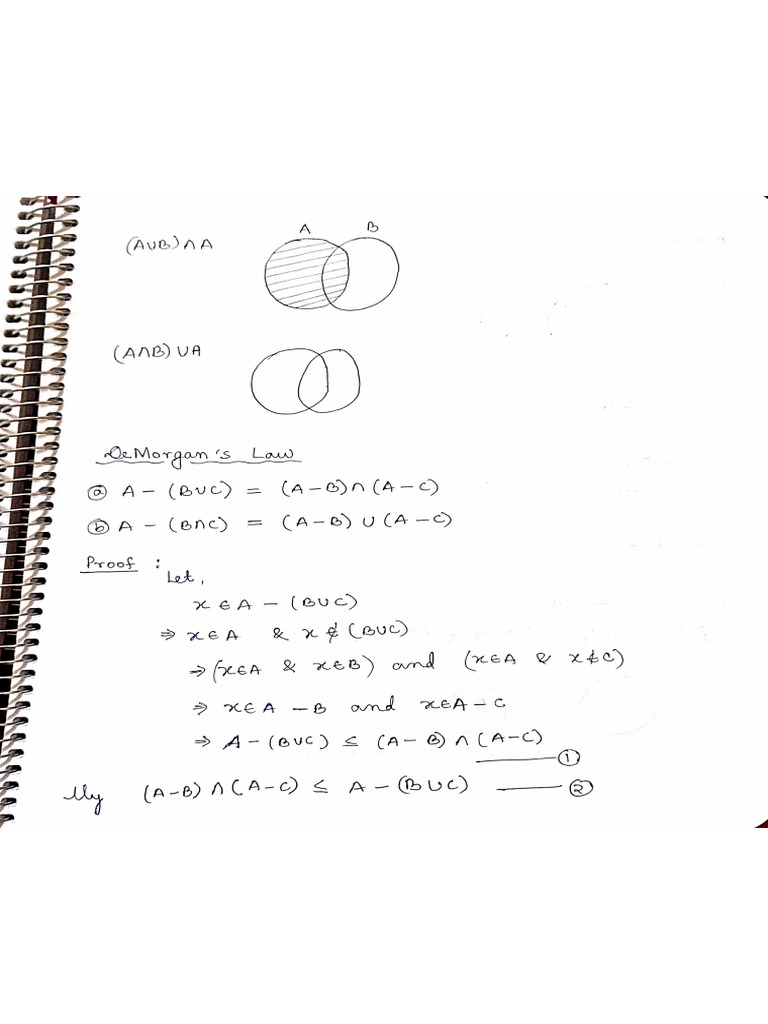 A B
(A∪B)∩A
(A∩B)∪A
DeMorgan's Law
ⓐ A - (B∪C) = (A-B)∩(A-C)
ⓑ A - (B∩C) = (A-B) ∪ (A-C)
Proof :
Let,
x ∈ A - (B∪C)
⇒ x∈A & x ∉ (B∪C)
→ (x∈A & x∈B) and (x∈A & x∉C)
⇒ x∈A - B and x∈A - C
⇒ A - (B∪C) ≤ (A - B) ∩ (A-C)
①
lly (A-B) ∩ (A-C) ≤ A - (B∪C) ②